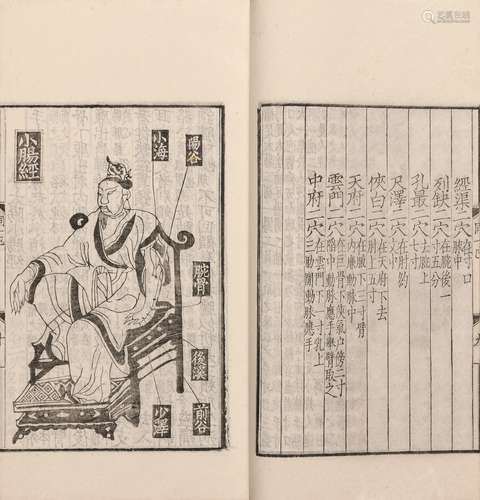 經渠二穴在寸口脈中
列缺二穴去腕後一寸五分
孔最二穴去腕上七寸
尺澤二穴在肘約
俠白二穴在天府下去肘上五寸
天府二穴在腋下三寸臂內廉動脈中
雲門二穴在巨骨下俠氣戶傍二寸陷中動脈應手舉臂取之
中府二穴在雲門下一寸乳上三動脈應手
小腸經
小海
陽谷
腕骨
後溪
前谷
少澤